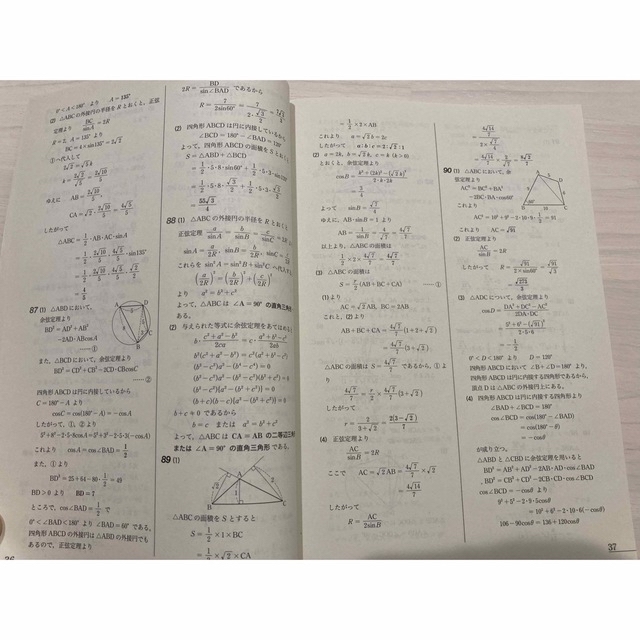 0°<A<180° より A=135°
(2) △ABCの外接円の半径を R とおくと，正弦
定理より BC/sinA=2R
R=2, A=135° より
①へ代入して
2√2=√5k
ゆえに
したがって
△ABC=1/2・AB・AC・sinA
87 (1) △ABDにおいて，
余弦定理より
BD²=AD²+AB²
-2AD・ABcosA
……①
また，△BCDにおいて，余弦定理より
BD²=CD²+CB²-2CD・CBcosC
……②
四角形ABCDは円に内接しているから
C=180°-A より
cosC=cos(180°-A)=-cosA
したがって，①，②より
5²+8²-2・5・8cosA=5²+3²-2・5・3(-cosA)
これより cosA=cos∠BAD=1/2
また，①より
BD²=25+64-80・1/2=49
BD>0 より BD=7
ところで，cos∠BAD=1/2 で
0°<∠BAD<180° より ∠BAD=60° である。
四角形ABCDの外接円は△ABDの外接円でも
あるので，正弦定理より
2R=BD/sin∠BAD であるから
R=7/2sin60°=7/(2・√3/2)=7√3/3
(2) 四角形ABCDは円に内接しているから
∠BCD=180°-∠BAD=120°
よって，四角形ABCDの面積を S とおくと
S=△ABD+△BCD
=1/2・5・8・sin60°+1/2・5・3・sin120°
=1/2・5・8・√3/2+1/2・5・3・√3/2
=55√3/4
88 (1) △ABCの外接円の半径を R とすると
正弦定理 a/sinA=b/sinB=c/sinC=2R
sinA=a/2R, sinB=b/2R, sinC=
これらを sin²A=sin²B+sin²C へ代入す
(a/2R)²=(b/2R)²+(c/2R)²
より a²=b²+c²
よって，△ABCは ∠A=90° の直角三角形
である。
(2) 与えられた等式に余弦定理をあてはめると
b・(c²+a²-b²)/2ca=c・(a²+b²-c²)/2ab
b²(c²+a²-b²)=c²(a²+b²-c²)
(b²-c²)a²-(b⁴-c⁴)=0
(b²-c²)a²-(b²-c²)(b²+c²)=0
(b²-c²){a²-(b²+c²)}=0
(b+c)(b-c){a²-(b²+c²)}=0
b+c≠0 であるから
b=c または a²=b²+c²
よって，△ABCは CA=AB の二等辺三角形
または ∠A=90° の直角三角形である。
89 (1)
△ABCの面積を S とすると
S=1/2×1×BC
=1/2×√2×CA
=1/2×2×AB
これより a=√2b=2c
したがって a:b:c=2:√2:1
(2) a=2k, b=√2k, c=k (k>0)
とおくと，余弦定理より
cosB=(k²+(2k)²-(√2k)²)/2・k・2k
=3/4
よって sinB=√7/4
ゆえに，AB・sinB=1より
AB=4/√7=4√7/7
以上より，△ABCの面積は
1/2×2×4√7/7=4√7/7
(3) △ABCの面積は
S=r/2(AB+BC+CA) ……①
(1)より
AC=√2AB, BC=2AB
これと，(2)より
AB+BC+CA=4√7/7(1+2+√2)
=4√7/7(3+√2)
△ABCの面積は S=4√7/7 であるから，①より
4√7/7=r/2×4√7/7(3+√2)
したがって
r=2/(3+√2)=2(3-√2)/7
(4) 正弦定理より
AC/sinB=2R
ここで AC=√2AB=4√7/7×√2
=4√14/7
したがって
R=AC/2sinB
=(4√14/7)/(2×√7/4)
90 (1) △ABCにおいて，余
弦定理より
AC²=BC²+BA²
-2BC・BA・cos60°
これより
AC²=10²+9²-2・10・9・1/2=91
これより AC=√91
(2) 正弦定理より
AC/sinB=2R
したがって R=√91/(2×sin60°)=√91/√3
=√273/3
(3) △ADCについて，余弦定理より
cosD=(DA²+DC²-AC²)/2DA・DC
=(5²+6²-(√91)²)/2・5・6
=-1/2
0°<D<180° より D=120°
四角形ABCDにおいて ∠B+∠D=180° より，
四角形ABCDは円に内接する四角形であるから
頂点Dは△ABCの外接円上にある。
(4) 四角形ABCDは円に内接する四角形より
∠BAD+∠BCD=180°
cos∠BCD=cos(180°-∠BAD)
=cos(180°-θ)
=-cosθ
が成り立つ。
△ABDと△CBDに余弦定理を用いると
BD²=AB²+AD²-2AB・AD・cos∠BAD
BD²=CB²+CD²-2CB・CD・cos∠BCD
cos∠BCD=-cosθ より
9²+5²-2・9・5cosθ
=10²+6²-2・10・6(-cosθ)
106-90cosθ=136+120cosθ
37